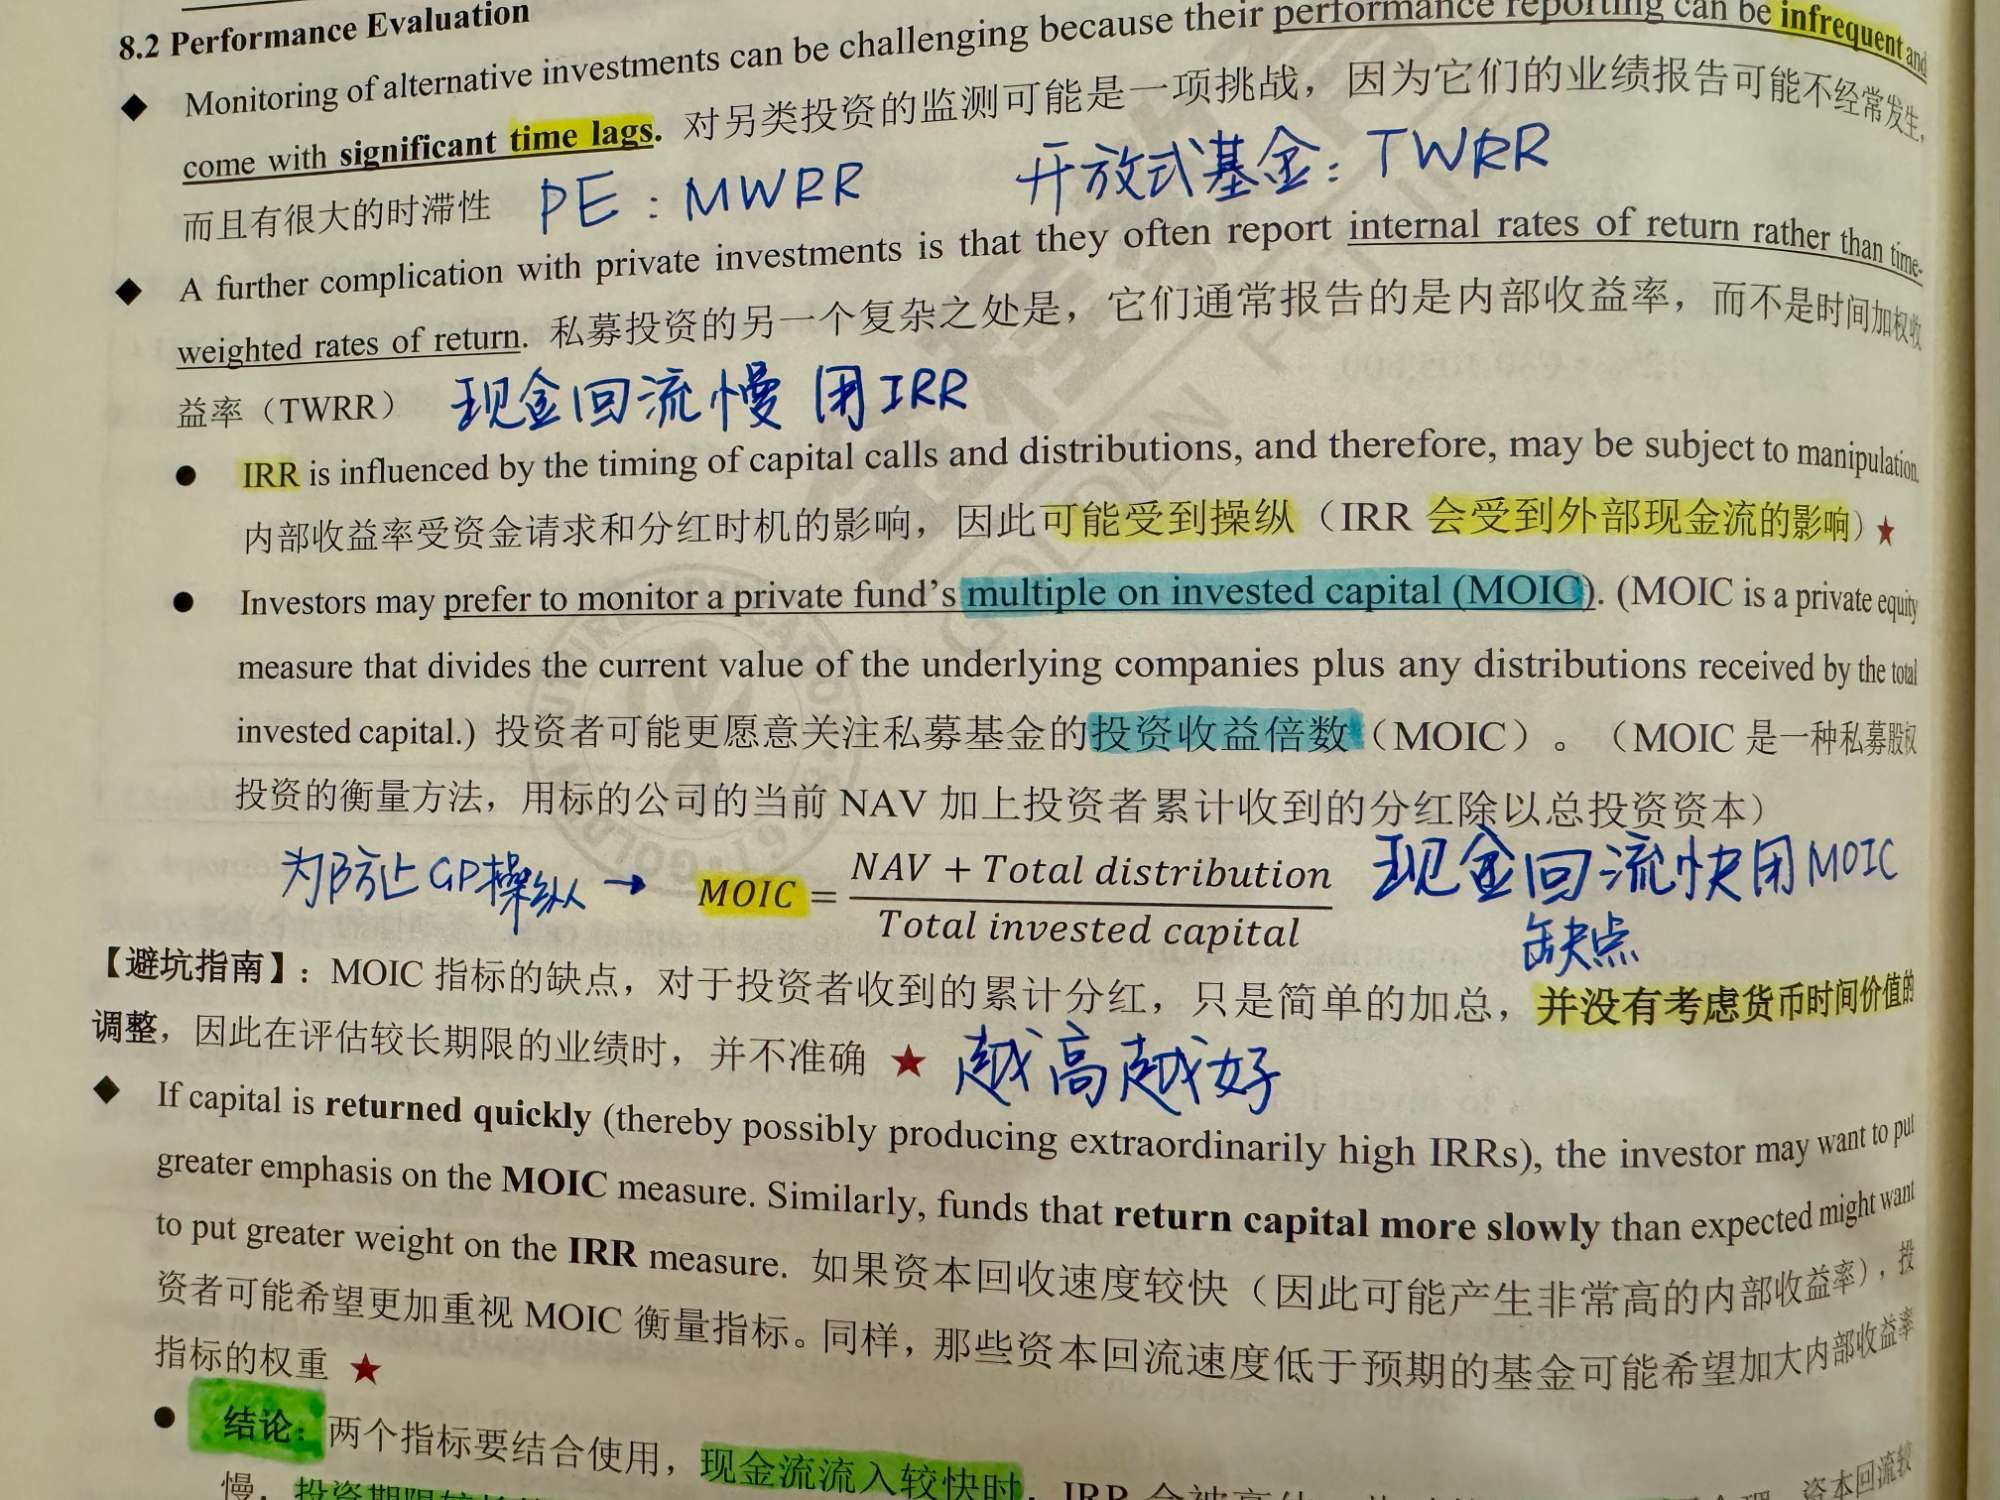 8.2 Performance Evaluation
◆ Monitoring of alternative investments can be challenging because their performance reporting can be infrequent and
come with significant time lags. 对另类投资的监测可能是一项挑战，因为它们的业绩报告可能不经常发生，
而且有很大的时滞性 PE：MWRR 开放式基金：TWRR
◆ A further complication with private investments is that they often report internal rates of return rather than time-
weighted rates of return. 私募投资的另一个复杂之处是，它们通常报告的是内部收益率，而不是时间加权收
益率（TWRR） 现金回流慢 用IRR
● IRR is influenced by the timing of capital calls and distributions, and therefore, may be subject to manipulation.
内部收益率受资金请求和分红时机的影响，因此可能受到操纵（IRR 会受到外部现金流的影响）★
● Investors may prefer to monitor a private fund's multiple on invested capital (MOIC). (MOIC is a private equity
measure that divides the current value of the underlying companies plus any distributions received by the total
invested capital.) 投资者可能更愿意关注私募基金的投资收益倍数（MOIC）。（MOIC 是一种私募股权
投资的衡量方法，用标的公司的当前 NAV 加上投资者累计收到的分红除以总投资资本）
为防止GP操纵 → MOIC = (NAV + Total distribution) / (Total invested capital) 现金回流快用MOIC
缺点
【避坑指南】：MOIC 指标的缺点，对于投资者收到的累计分红，只是简单的加总，并没有考虑货币时间价值的
调整，因此在评估较长期限的业绩时，并不准确 ★ 越高越好
◆ If capital is returned quickly (thereby possibly producing extraordinarily high IRRs), the investor may want to put
greater emphasis on the MOIC measure. Similarly, funds that return capital more slowly than expected might want
to put greater weight on the IRR measure. 如果资本回收速度较快（因此可能产生非常高的内部收益率），投
资者可能希望更加重视 MOIC 衡量指标。同样，那些资本回流速度低于预期的基金可能希望加大内部收益率
指标的权重 ★
● 结论：两个指标要结合使用，现金流流入较快时，IRR 会被高估 资本回流较
慢，投资期限较长